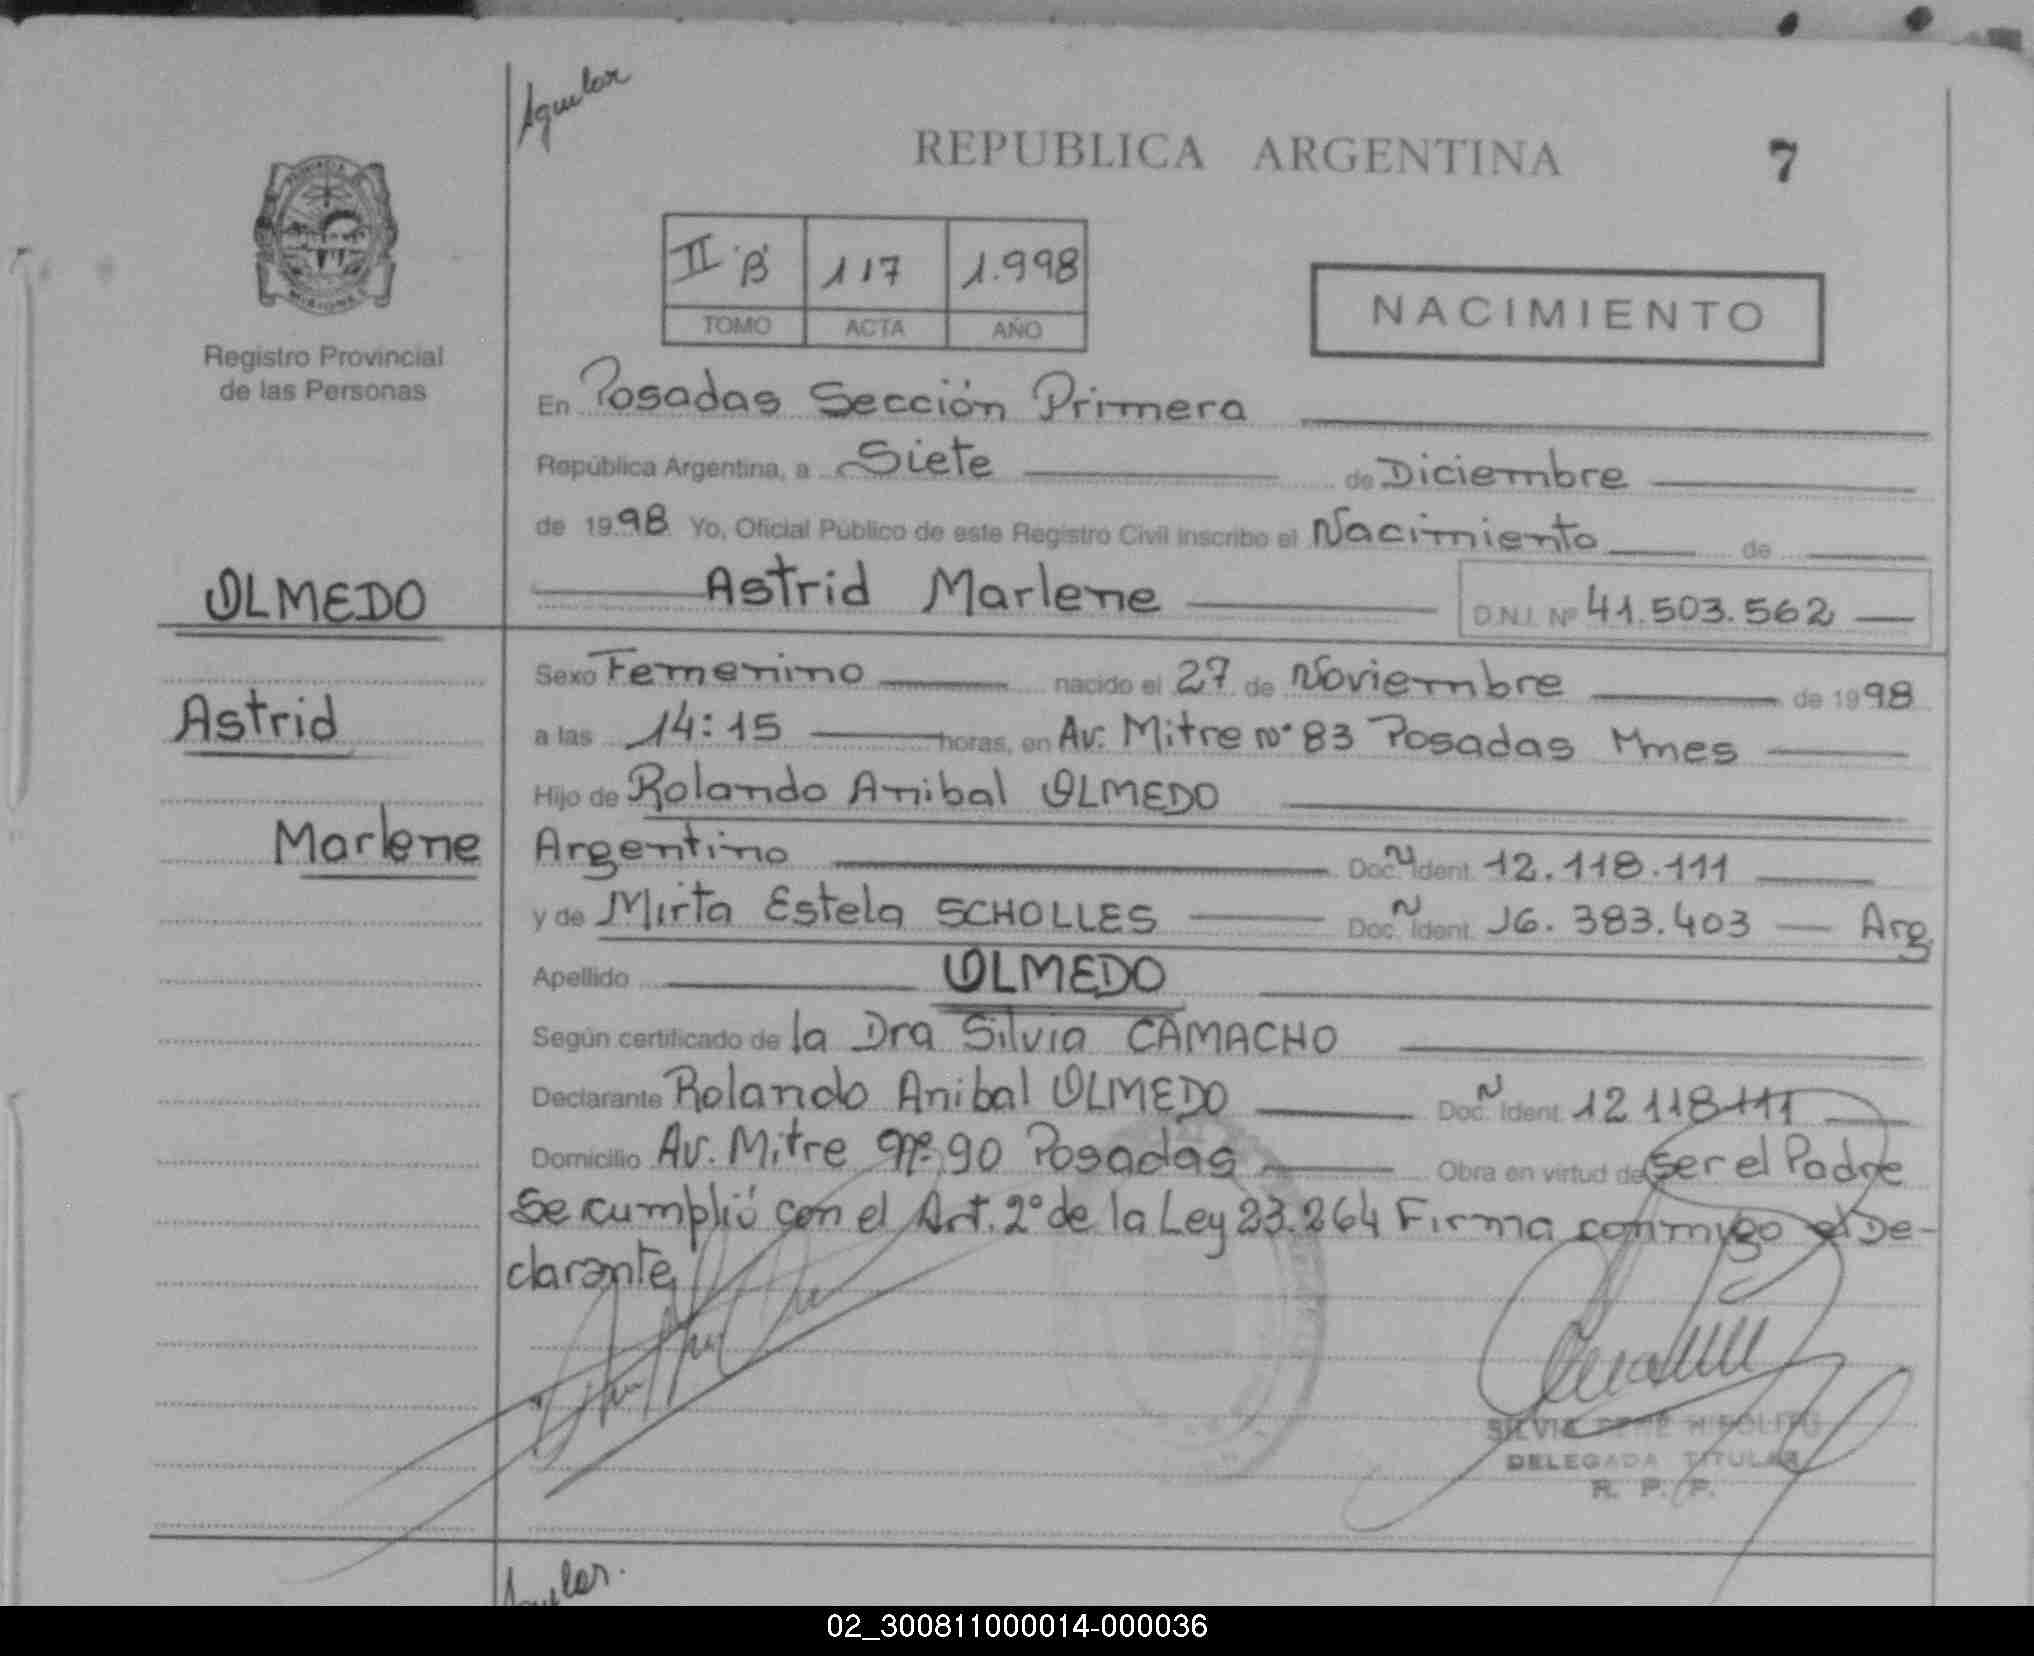 Aguilar
REPUBLICA ARGENTINA 7
PROVINCIA
MISIONES
Registro Provincial
de las Personas
II "B" 117 1.998
TOMO ACTA AÑO
NACIMIENTO
En Posadas Sección Primera
República Argentina, a Siete de Diciembre
de 1998 Yo, Oficial Público de este Registro Civil inscribo el Nacimiento de
OLMEDO
Astrid Marlene D.N.I. Nº 41.503.562
Sexo Femenino nacido el 27 de Noviembre de 1998
Astrid
a las 14:15 horas, en Av. Mitre nº 83 Posadas Mnes
Hijo de Rolando Anibal OLMEDO
Marlene
Argentino Doc. N Ident. 12.118.111
y de Mirta Estela SCHOLLES Doc. N Ident. 16.383.403 Arg
Apellido OLMEDO
Según certificado de la Dra Silvia CAMACHO
Declarante Rolando Anibal OLMEDO Doc. N Ident. 12118111
Domicilio Av. Mitre nº 90 Posadas Obra en virtud de ser el Padre
Se cumplió con el Art. 2º de la Ley 23.264 Firma conmigo el De-
clarante
SILVIA RENE HIPOLITO
DELEGADA TITULAR
R. P. P.
Aguilar.
02_300811000014-000036